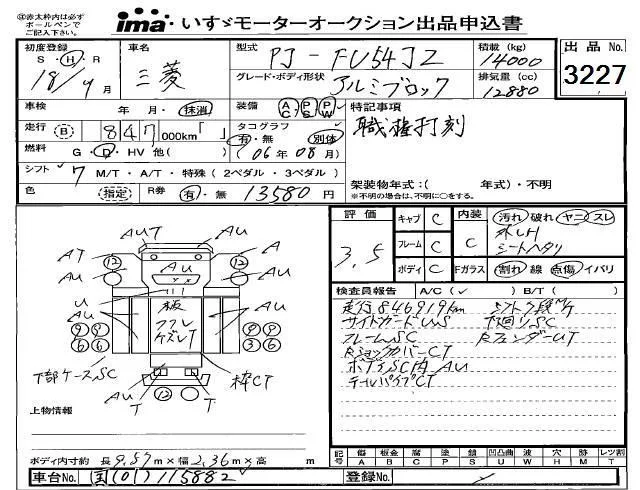 ㊟赤太枠内は必ずボールペンでご記入下さい。
ima いすゞモーターオークション出品申込書
初度登録 S・H・R 18/4月
車名 三菱
型式 PJ-FU54JZ
積載(kg) 14000
グレード・ボディ形状 アルミブロック
排気量(cc) 12880
出品No. 3227
車検 年・月・抹消
装備 AC PS PW
特記事項
職権打刻
走行 B 847,000km「 」
タコグラフ 有・無 別体
(06年08月)
燃料 G・D・HV 他( )
シフト 7 M/T・A/T・特殊(2ペダル・3ペダル)
架装物年式:( 年式)・不明
※不明の場合は、不明に○をする。
色 (指定) R券 有・無 13580円
評価 3.5
キャブ C
フレーム C
ボディ C
内装 C
Fガラス
汚れ 破れ ヤニ スレ
シートヘタリ
割れ 線 点傷 イバリ
検査員報告 A/C(✓) B/T( )
走行846919km シフト7段M/T
サイドガードUWS 下回りSC
フレームSC RフェンダーUT
RショックカバーCT
ボディSC内AU
テールパイプCT
AUT
AT AU A
12 12
AU AU
U AU
板
フクレ
ケズレT
9 9 9 9
6 6 3 6
下部ケースSC
枠CT
AU T T
12
上物情報
ボディ内寸約 長9.57m×幅2.36m×高 m
記号 傷A 板金B 腐C 塗P 錆S 凹凸曲U 波W 穴H 跡M レツ割T
車台No. 国(01)115882
登録No.